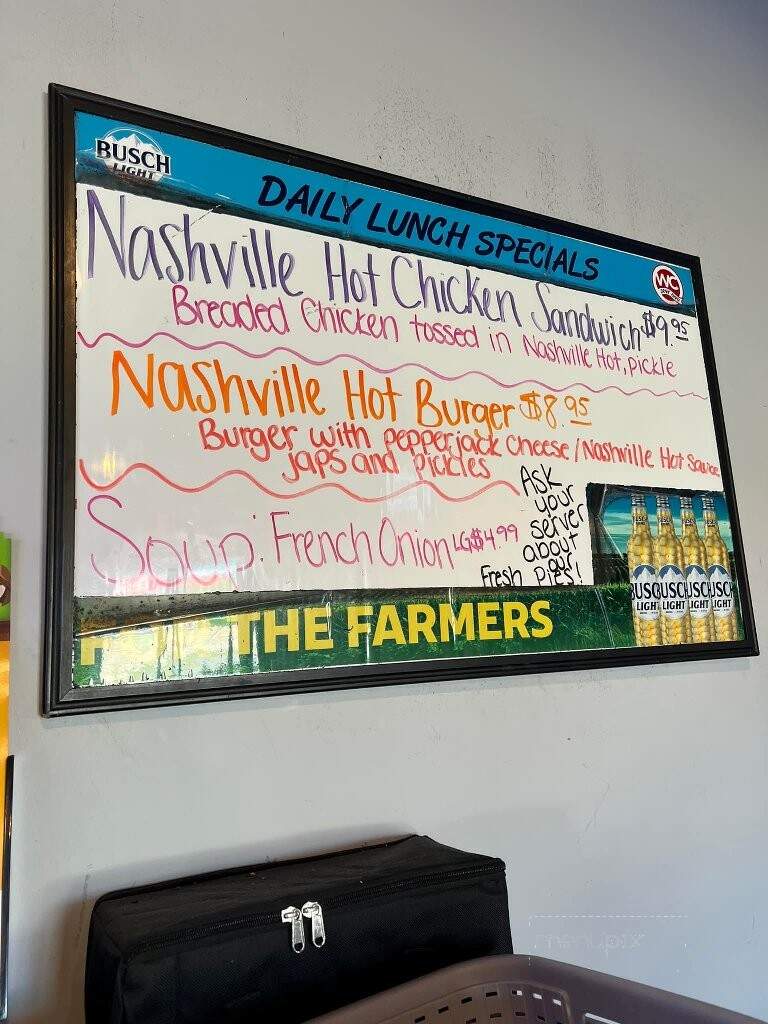 BUSCH
LIGHT
DAILY LUNCH SPECIALS
WC
Nashville Hot Chicken Sandwich $9.95
Breaded Chicken tossed in Nashville Hot, pickle
Nashville Hot Burger $8.95
Burger with pepperjack cheese / Nashville Hot Sauce
japs and pickles
Soup: French Onion LG $4.99
Ask
your
server
about
our
Fresh Pies!
THE FARMERS
BUSCH
LIGHT
BUSCH
LIGHT
BUSCH
LIGHT
BUSCH
LIGHT
menupix